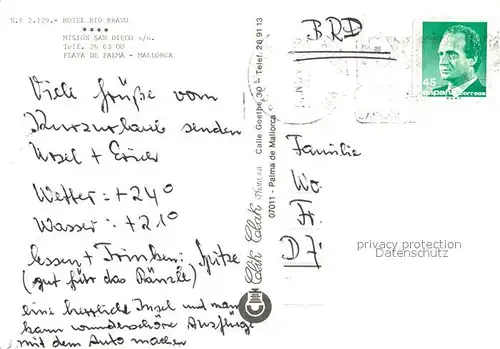 N.R 2.139.- HOTEL RIO BRAVO
★★★★
MISION SAN DIEGO s/n.
Telf. 26 63 00
PLAYA DE PALMA - MALLORCA
Viele Grüße vom
Kurzurlaub senden
Ursel + Erich
Wetter: +24°
Wasser: +21°
Essen + Trinken: Spitze
(gut für das Ränzle)
eine herrliche Insel und man
kann wunderschöne Ausflüge
mit dem Auto machen
Clik Clak
Calle Goethe, 30 - Telef. 28 9113
07011 - Palma de Mallorca
BRD
45
españa correos
Familie
Wo
Fr.
D 7
privacy protection
Datenschutz